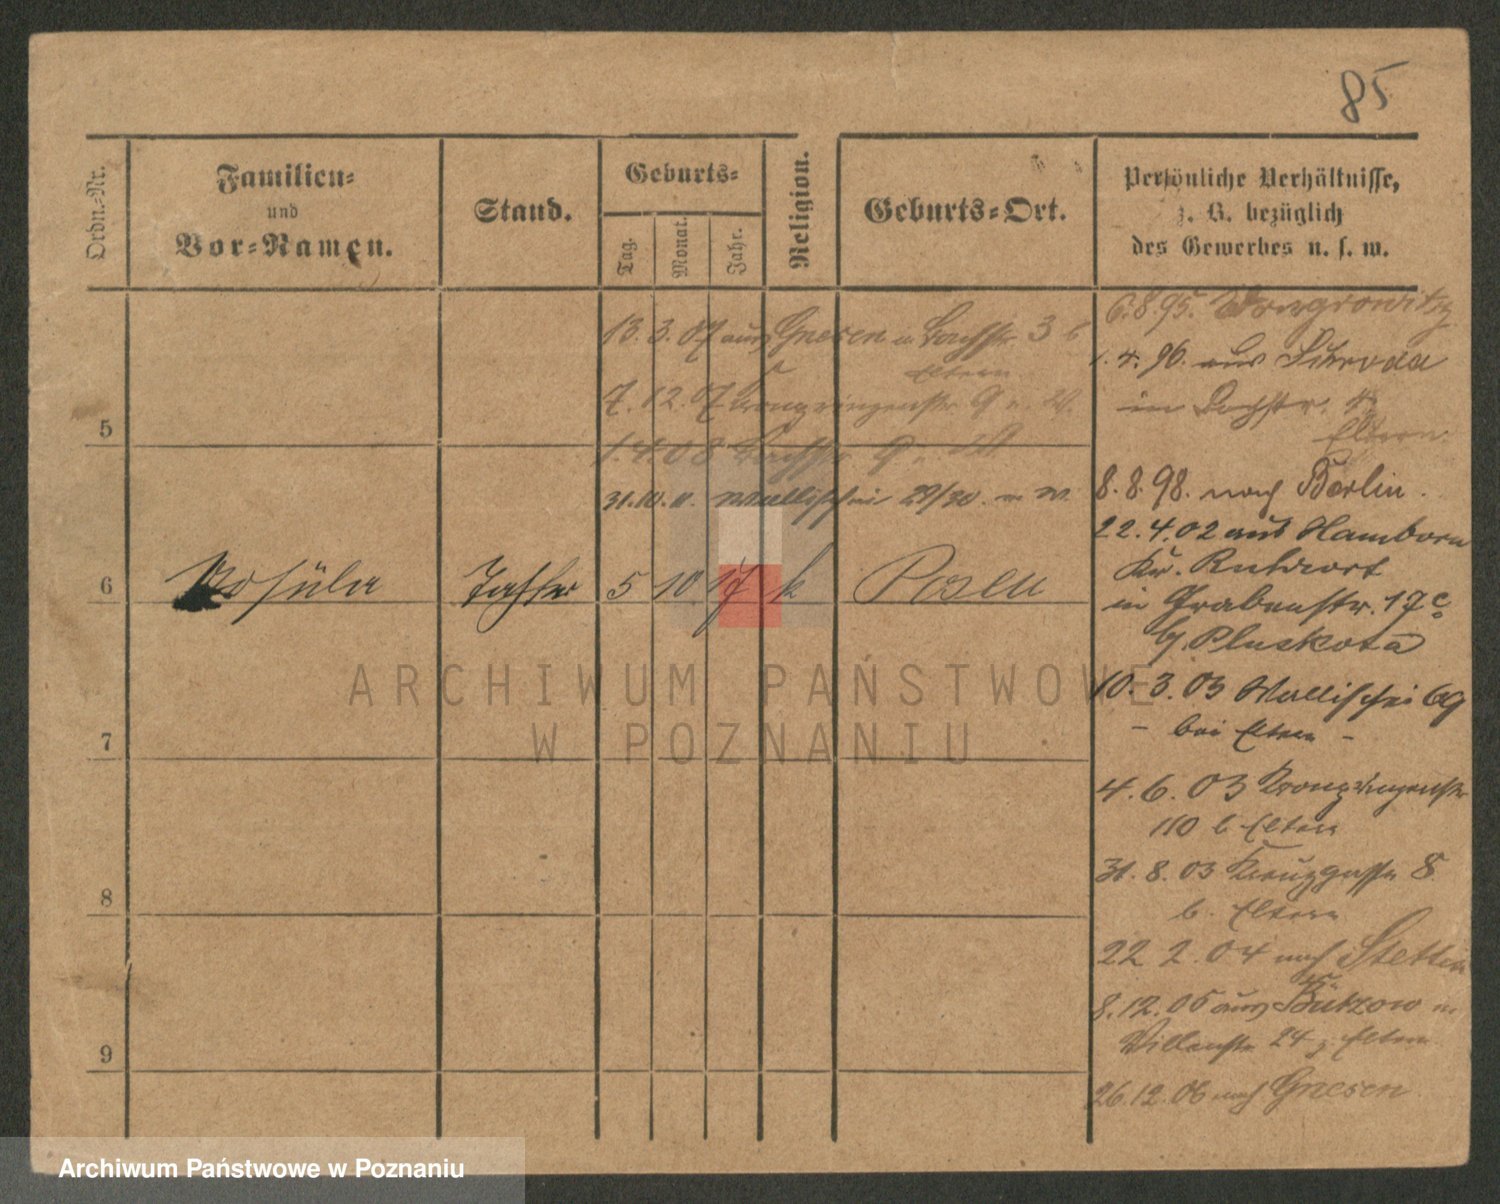 85
Ordn.-Nr.
Familien-
und
Vor-Namen.
Stand.
Geburts-
Tag.
Monat.
Jahr.
Religion.
Geburts-Ort.
Persönliche Verhältnisse,
z. B. bezüglich
des Gewerbes u. s. w.
13. 3. 07 aus Gnesen n Bachstr 3 b
Eltern
7. 12. 07 Kronprinzenstr 9
1. 4. 08 Bachstr 9
31. 10. 11. Wallischei 29/30.
5
6
Tochter 5 10 17 k Posen
7
8
9
6. 8. 95. Wongrowitz
1. 4. 96. aus Schroda
in Bachstr.
Eltern
8. 8. 98. nach Berlin.
22. 4. 02 aus Hamborn
Kr. Ruhrort
in Grabenstr. 17c
b/ Pluskota
10. 3. 03 Wallischei 69
- bei Eltern -
4. 6. 03 Kronprinzenstr
110 b Eltern
31. 8. 03 Kreuzgasse 8
b. Eltern
22 2. 04 nach Stettin
8. 12. 05 aus Bützow n.
Villenstr 24 z Eltern
26. 12. 06 nach Gnesen
ARCHIWUM PAŃSTWOWE
W POZNANIU
Archiwum Państwowe w Poznaniu